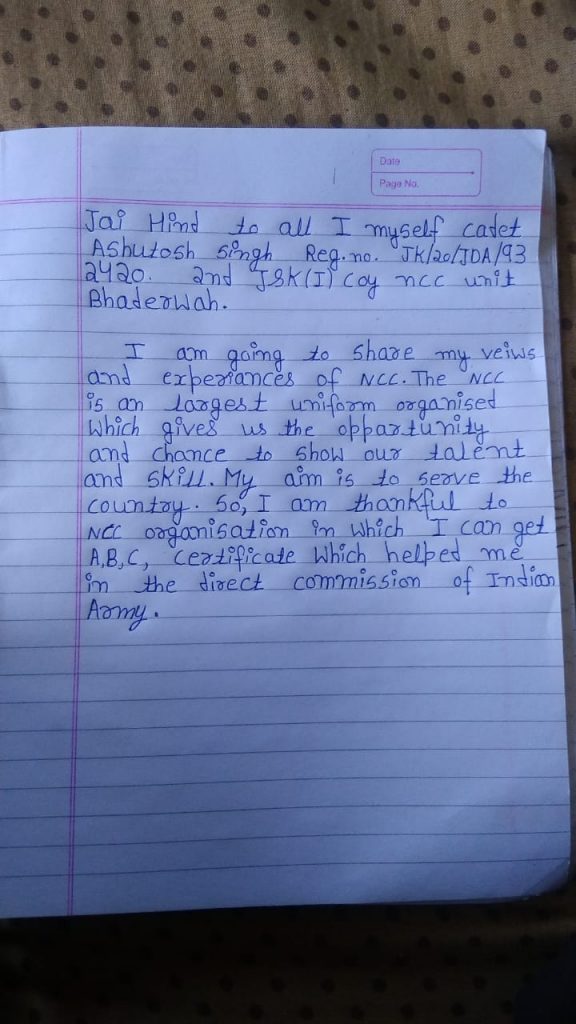 Date
Page No.
Jai Hind to all I myself cadet
Ashutosh singh Reg.no. JK/20/JDA/93
2420. 2nd J&K(I) Coy ncc unit
Bhaderwah.
I am going to share my veiws
and experiances of NCC. The NCC
is an largest uniform organised
Which gives us the oppartunity
and chance to show our talent
and skill. My aim is to serve the
country. So, I am thankful to
NCC organisation in which I can get
A,B,C, certificate Which helped me
in the direct commission of Indian
Army.